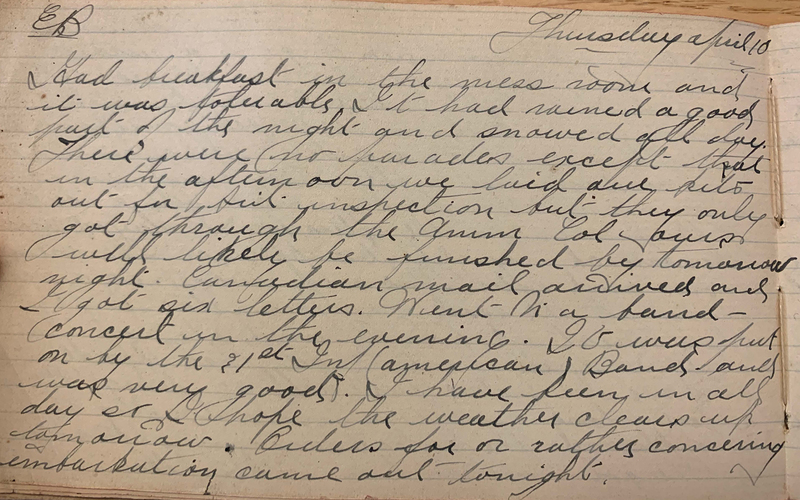 EB
Thursday April 10
Had breakfast in the mess room and
it was tolerable. It had rained a good
part of the night and snowed all day.
There were no parades except that
in the afternoon we laid our kits
out for kit inspection but they only
got through the Amm Col. Ours
will likely be finished by tomorrow
night. Canadian mail arrived and
I got six letters. Went to a band-
concert in the evening. It was put
on by the 31st Inf (American) Band and
was very good. I have been in all
day so I hope the weather clears up
tomorrow. Orders for or rather concerning
embarkation came out tonight.